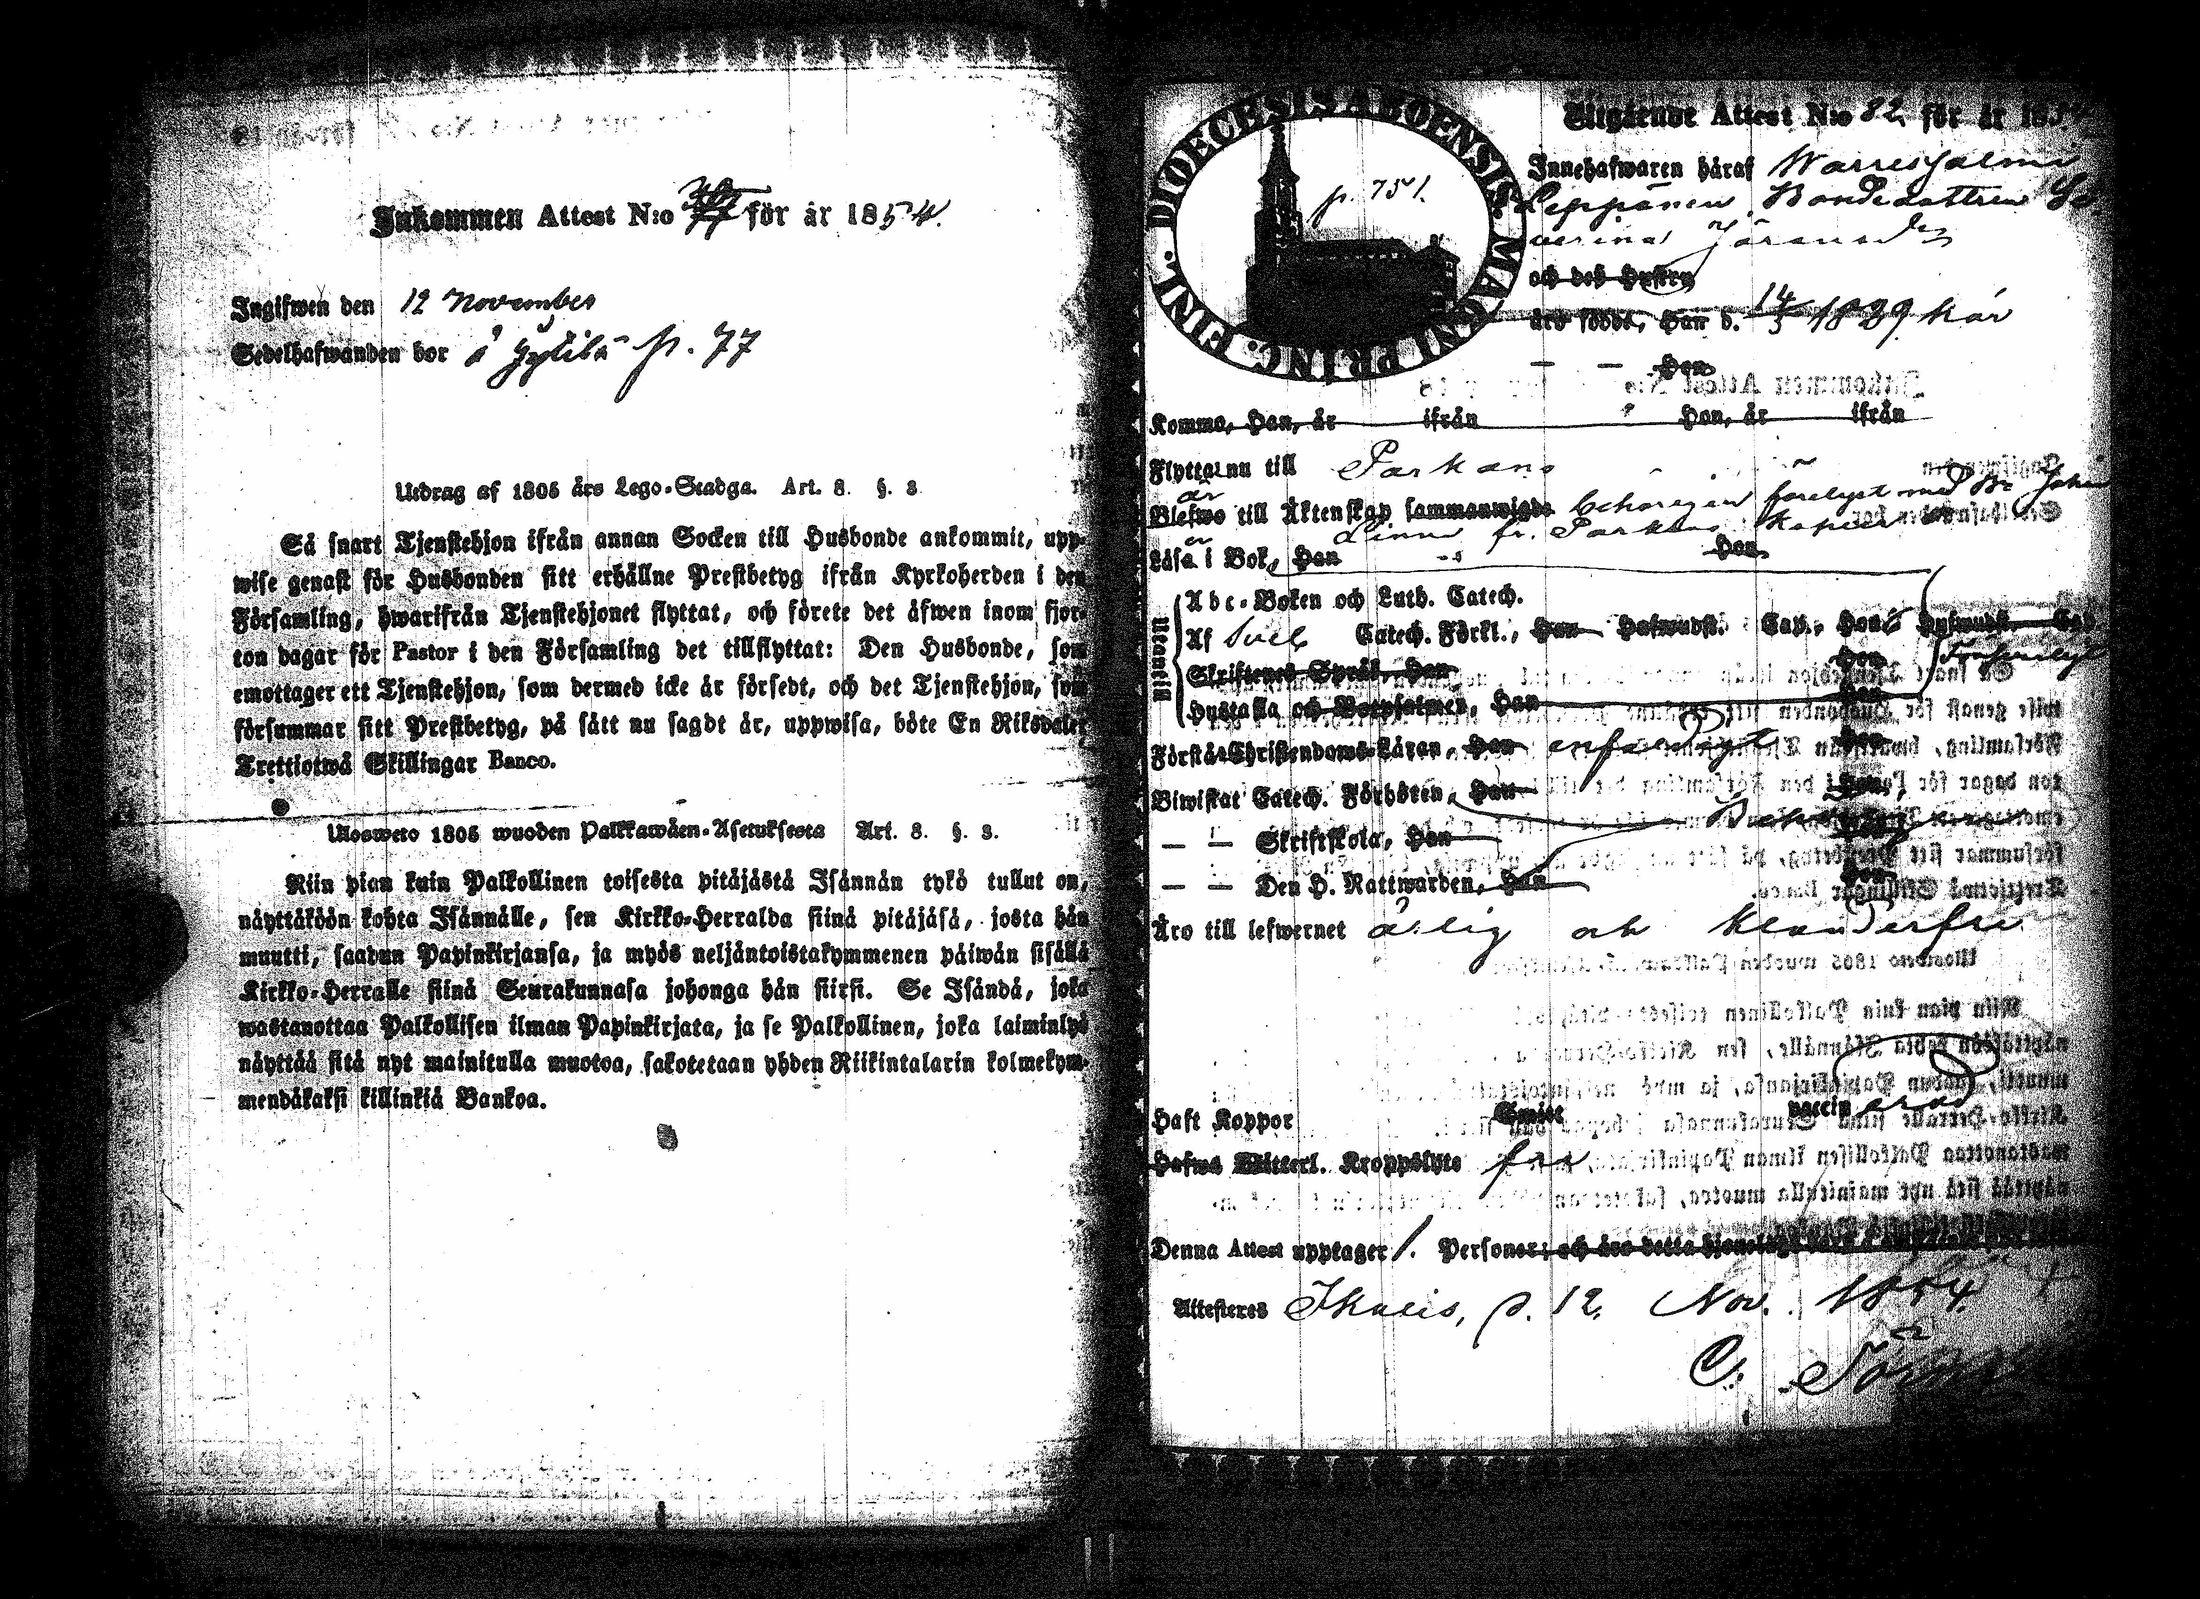 Inkommen Attest N:o för år 1854.
Ingifwen den 12 November
Sedelhafwanden bor å p. 77
Utdrag af 1805 års Lego-Stadga. Art. 8. §. 8
Så snart Tjenstehjon ifrån annan Socken till Husbonde ankommit, upp-
wise genast för Husbonden sitt erhållne Prestbetyg ifrån Kyrkoherden i den
Församling, hwarifrån Tjenstehjonet flyttat, och förete det äfwen inom fjor-
ton dagar för Pastor i den Församling det tillflyttat: Den Husbonde, som
emottager ett Tjenstehjon, som dermed icke är försedt, och det Tjenstehjon, som
försummar sitt Prestbetyg, på sätt nu sagdt är, uppwisa, böte En Riksdaler
Trettiotwå Skillingar Banco.
Ulosweto 1805 wuoden Palkkawäen-Asetuksesta Art. 8. §. 8.
Niin pian kuin Palkollinen toisesta pitäjästä Isännän tykö tullut on,
näyttäköön kohta Isännälle, sen Kirkko-Herralda siinä pitäjäsä, josta hän
muutti, saadun Papinkirjansa, ja myös neljäntoistakymmenen päiwän sisällä
Kirkko-Herralle siinä Seurakunnasa johonga hän siirsi. Se Isändä, joka
wastanottaa Palkollisen ilman Papinkirjata, ja se Palkollinen, joka laiminlyö
näyttää sitä nyt mainitulla muotoa, sakotetaan yhden Riikintalarin kolmekym-
mendäkaksi killinkiä Bankoa.
DIOECESIS ABOENSIS. MAGNI PRINC. FINL.
p. 751.
Utgående Attest N:o 82, för år 1854
Innehafwaren häraf
Leppänen, Bondedottren
och deß Hustru
äro födde, Han d. 14/3 1829 här
— — Hon
Komma, Han, år ifrån Hon, år ifrån
Flytta nu till Parkano
är behörigen förelyst med
Blefwo till Äktenskap sammanwigde
fr. Parkano
Läsa i Bok, Han Hon
Utaneln
Abc-Boken och Luth. Catech.
Af Svel Catech. Förkl., Han Hafwudst. Cap., Hon Hufwudst. Cap.
Skriftenes Språk, Han Hon
Hustafla och Botpsalmer, Han Hon
Förstå Christendoms-Läran, Han enfaldigt Hon
Biwistat Catech. Förhören, Han Hon
— — Skriftskola, Han
— — Den H. Nattwarden, Han Hon
Äro till lefwernet ärlig och klanderfri
Haft Koppor vaccinerad
Hafwa Witterl. Kroppslyte fri
Denna Attest upptager 1. Personer; och äro detta
Attesteras Ikalis, d. 12. Nov. 1854.
C.